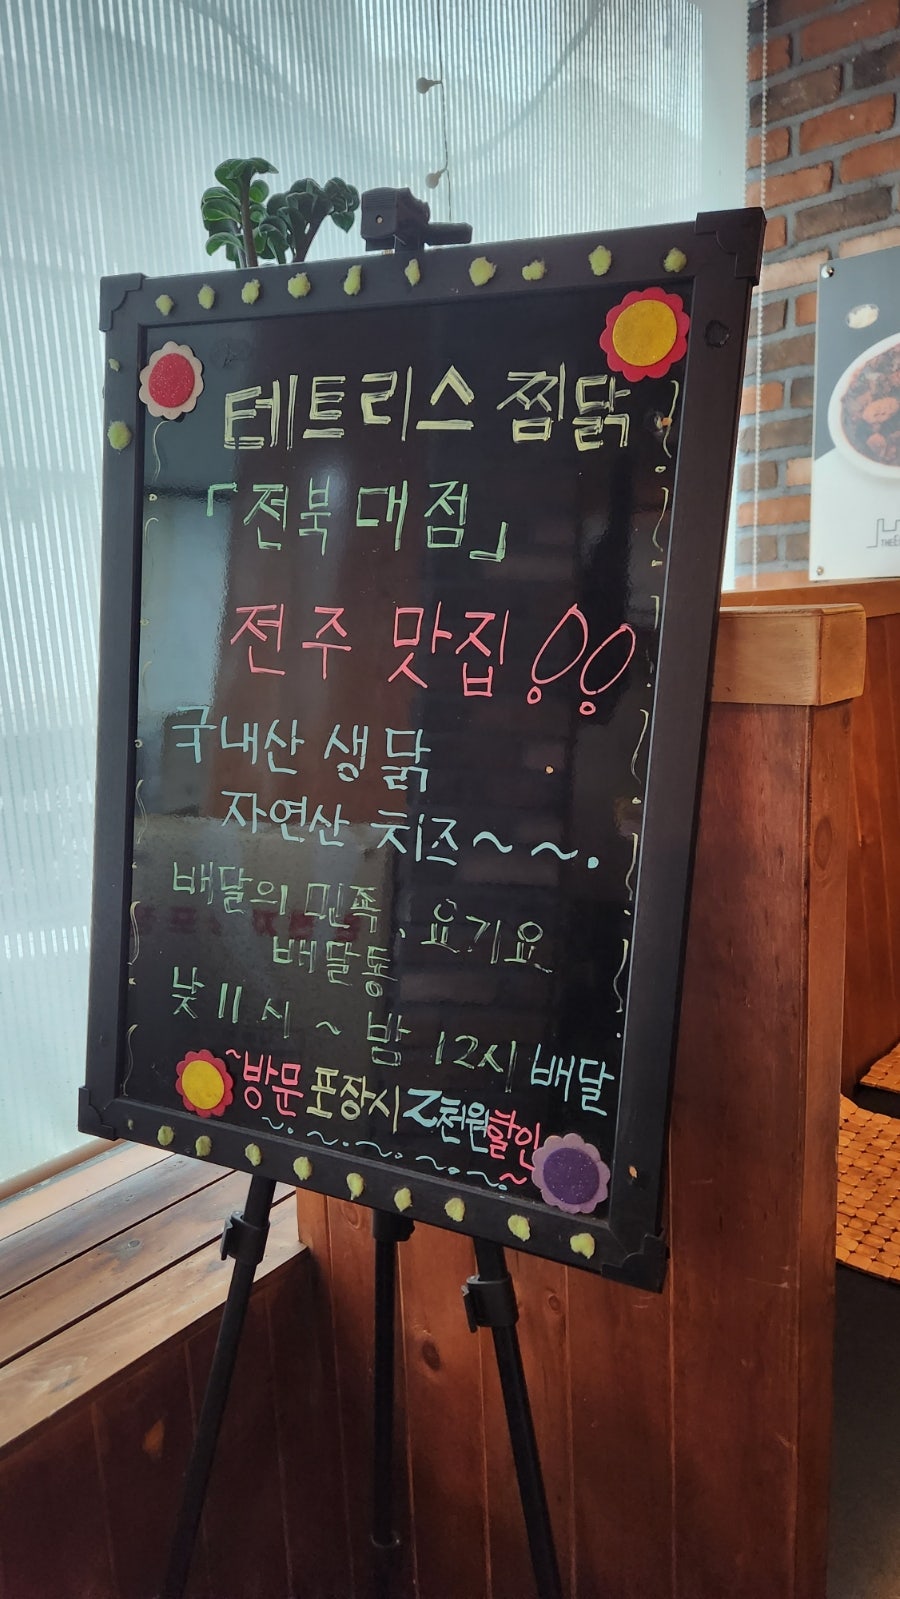 테트리스 찜닭
「전북 대점」
전주 맛집!!
국내산 생닭
자연산 치즈~~.
배달의 민족, 요기요
배달통
낮 11시 ~ 밤 12시 배달
~방문 포장시 2천원할인~